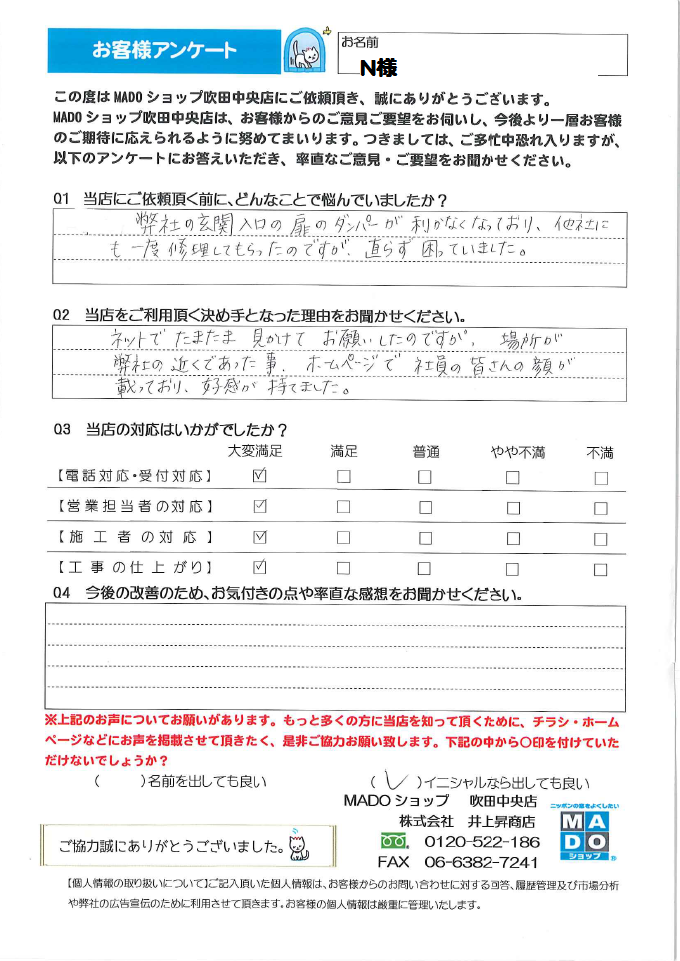 お客様アンケート
お名前
N様
この度は MADO ショップ吹田中央店にご依頼頂き、誠にありがとうございます。
MADO ショップ吹田中央店は、お客様からのご意見ご要望をお伺いし、今後より一層お客様
のご期待に応えられるように努めてまいります。つきましては、ご多忙中恐れ入りますが、
以下のアンケートにお答えいただき、率直なご意見・ご要望をお聞かせください。
Q1 当店にご依頼頂く前に、どんなことで悩んでいましたか？
弊社の玄関入口の扉のダンパーが利かなくなっており、他社に
も一度修理してもらったのですが、直らず困っていました。
Q2 当店をご利用頂く決め手となった理由をお聞かせください。
ネットでたまたま見かけてお願いしたのですが、場所が
弊社の近くであった事、ホームページで社員の皆さんの顔が
載っており、好感が持てました。
Q3 当店の対応はいかがでしたか？
大変満足 満足 普通 やや不満 不満
【電話対応・受付対応】 ☑ □ □ □ □
【営業担当者の対応】 ☑ □ □ □ □
【施工者の対応】 ☑ □ □ □ □
【工事の仕上がり】 ☑ □ □ □ □
Q4 今後の改善のため、お気付きの点や率直な感想をお聞かせください。
※上記のお声についてお願いがあります。もっと多くの方に当店を知って頂くために、チラシ・ホーム
ページなどにお声を掲載させて頂きたく、是非ご協力お願い致します。下記の中から〇印を付けていた
だけないでしょうか？
（ ）名前を出しても良い （✓）イニシャルなら出しても良い
MADO ショップ 吹田中央店
株式会社 井上昇商店
0120-522-186
FAX 06-6382-7241
ニッポンの窓をよくしたい
MADO
ショップ
ご協力誠にありがとうございました。
【個人情報の取り扱いについて】ご記入頂いた個人情報は、お客様からのお問い合わせに対する回答、履歴管理及び市場分析
や弊社の広告宣伝のために利用させて頂きます。お客様の個人情報は厳重に管理いたします。